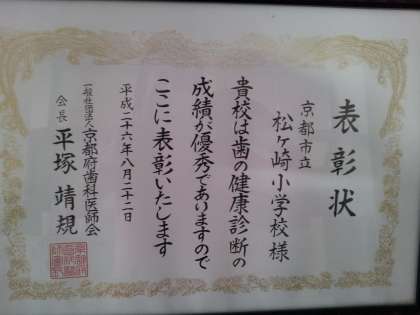 表彰状
京都市立
松ケ崎小学校様
貴校は歯の健康診断の
成績が優秀でありますので
ここに表彰いたします
平成二十六年八月二十二日
一般社団法人京都府歯科医師会
会長 平塚靖規